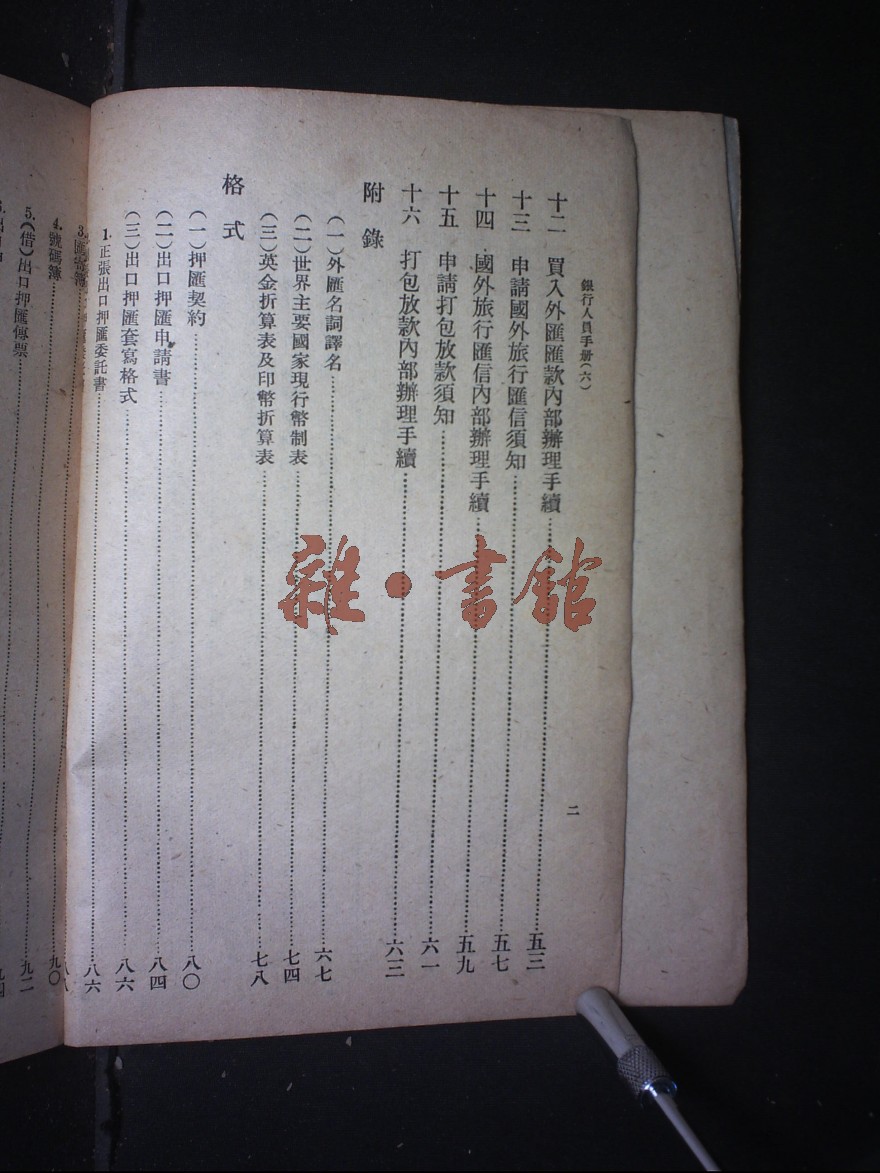 銀行人員手册(六)
二
十二 買入外匯匯款內部辦理手續……五三
十三 申請國外旅行匯信須知……五七
十四 國外旅行匯信內部辦理手續……五九
十五 申請打包放款須知……六一
十六 打包放款內部辦理手續……六三
附錄
(一)外匯名詞譯名……六七
(二)世界主要國家現行幣制表……七四
(三)英金折算表及印幣折算表……七八
格式
(一)押匯契約……八〇
(二)出口押匯申請書……八四
(三)出口押匯套寫格式……八六
1.正張出口押匯委託書……八六
3.匯寄簿
4.號碼簿……九〇
5.(借)出口押匯傳票……九二
雜·書館